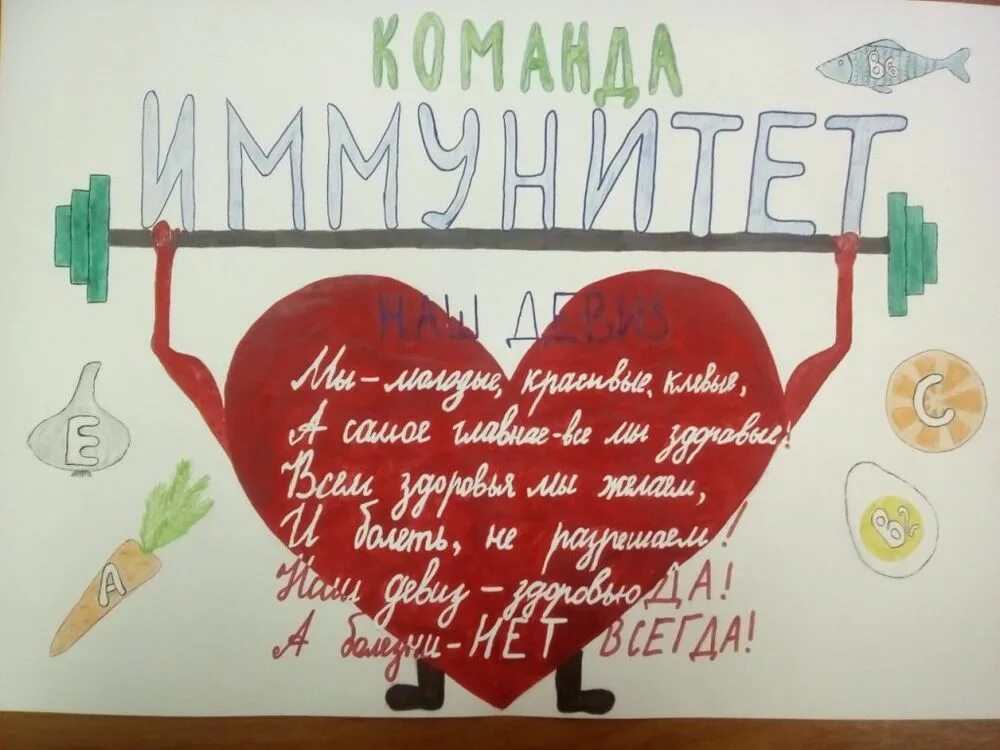 КОМАНДА
ИММУНИТЕТ
НАШ ДЕВИЗ
Мы - молодые, красивые, клевые,
А самое главное - все мы здоровые!
Всем здоровья мы желаем,
И болеть, не разрешаем!
Наш девиз - здоровью ДА!
А болезни - НЕТ ВСЕГДА!
B6
E
C
A